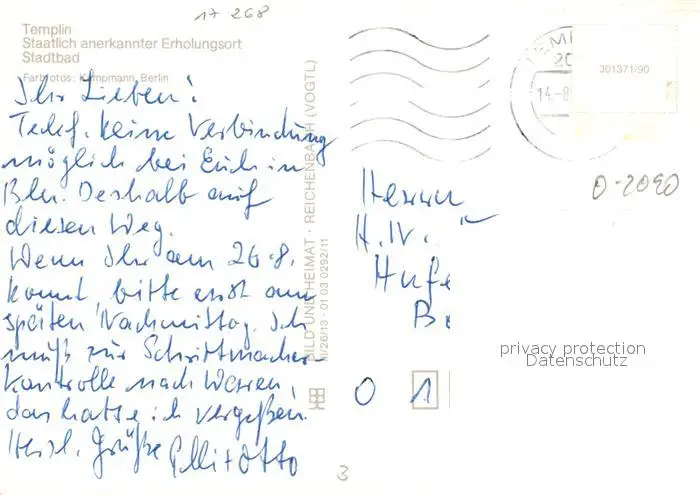 17 268
Templin
Staatlich anerkannter Erholungsort
Stadtbad
Farbfotos: Kampmann, Berlin
Ihr Lieben!
Telef. keine Verbindung
möglich bei Euch in
Bln. Deshalb auf
diesen Weg.
Wenn Ihr am 26.8.
kommt, bitte erst am
späten Nachmittag. Ich
muß zur Schrittmacher-
kontrolle nach Waren,
das hatte ich vergeßen.
Herzl. Grüße Elli + Otto
BILD UND HEIMAT · REICHENBACH (VOGTL)
III/26/13 · 01 03 0292/11
TEM
20
14.-8
301371/90
0-2090
Herrn
H. W.
Hufe
Be
O 1
privacy protection
Datenschutz
3